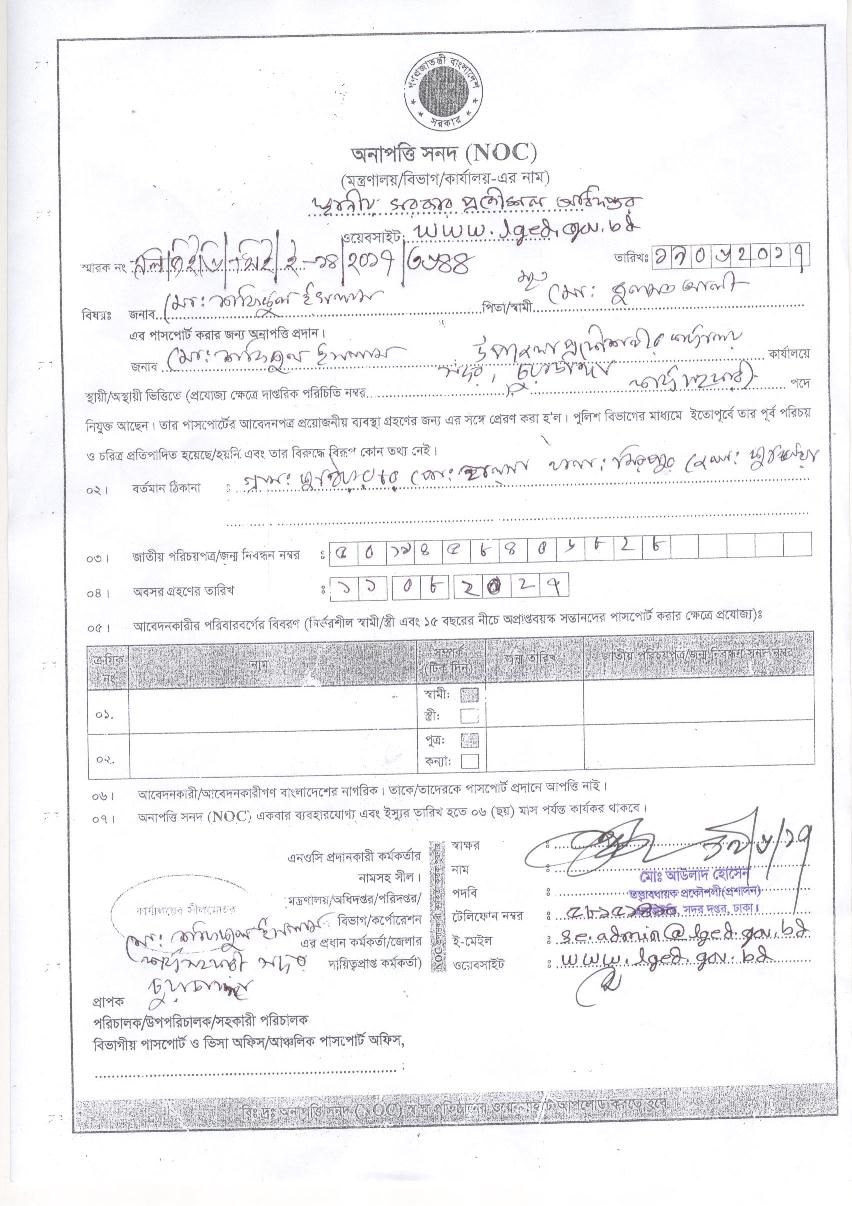 গণপ্রজাতন্ত্রী বাংলাদেশ
সরকার
অনাপত্তি সনদ (NOC)
(মন্ত্রণালয়/বিভাগ/কার্যালয়-এর নাম)
স্থানীয় সরকার প্রকৌশল অধিদপ্তর
ওয়েবসাইট: www.lged.gov.bd
স্মারক নং
তারিখঃ
বিষয়ঃ জনাব মোঃ শফিকুল ইসলাম পিতা/স্বামী মৃত মোঃ
এর পাসপোর্ট করার জন্য অনাপত্তি প্রদান।
জনাব মোঃ শফিকুল ইসলাম উপজেলা প্রকৌশলীর কার্যালয় কার্যালয়ে
সদর, চুয়াডাঙ্গা
স্থায়ী/অস্থায়ী ভিত্তিতে (প্রযোজ্য ক্ষেত্রে দাপ্তরিক পরিচিতি নম্বর) কার্যসহকারী পদে
নিযুক্ত আছেন। তার পাসপোর্টের আবেদনপত্র প্রয়োজনীয় ব্যবস্থা গ্রহণের জন্য এর সঙ্গে প্রেরণ করা হ'ল। পুলিশ বিভাগের মাধ্যমে ইতোপূর্বে তার পূর্ব পরিচয়
ও চরিত্র প্রতিপাদিত হয়েছে/হয়নি এবং তার বিরুদ্ধে বিরূপ কোন তথ্য নেই।
০২। বর্তমান ঠিকানা : গ্রাম: থানা: মিরপুর জেলা: কুষ্টিয়া
০৩। জাতীয় পরিচয়পত্র/জন্ম নিবন্ধন নম্বর :
০৪। অবসর গ্রহণের তারিখ :
০৫। আবেদনকারীর পরিবারবর্গের বিবরণ (নির্ভরশীল স্বামী/স্ত্রী এবং ১৫ বছরের নীচে অপ্রাপ্তবয়স্ক সন্তানদের পাসপোর্ট করার ক্ষেত্রে প্রযোজ্য)ঃ
ক্রমিক নং নাম সম্পর্ক (টিক দিন) জন্ম তারিখ জাতীয় পরিচয়পত্র/জন্ম নিবন্ধন সনদ নম্বর
০১. স্বামীঃ
স্ত্রীঃ
০২. পুত্রঃ
কন্যাঃ
০৬। আবেদনকারী/আবেদনকারীগণ বাংলাদেশের নাগরিক। তাকে/তাদেরকে পাসপোর্ট প্রদানে আপত্তি নাই।
০৭। অনাপত্তি সনদ (NOC) একবার ব্যবহারযোগ্য এবং ইস্যুর তারিখ হতে ০৬ (ছয়) মাস পর্যন্ত কার্যকর থাকবে।
এনওসি প্রদানকারী কর্মকর্তার
নামসহ সীল।
মন্ত্রণালয়/অধিদপ্তর/পরিদপ্তর/
বিভাগ/কর্পোরেশন
এর প্রধান কর্মকর্তা/জেলার
দায়িত্বপ্রাপ্ত কর্মকর্তা)
স্বাক্ষর :
নাম : মোঃ আউলাদ হোসেন
পদবি : তত্ত্বাবধায়ক প্রকৌশলী(প্রশাসন)
টেলিফোন নম্বর : সদর দপ্তর, ঢাকা।
ই-মেইল : se.admin@lged.gov.bd
ওয়েবসাইট : www.lged.gov.bd
কার্যালয়ের সীলমোহর
মোঃ শফিকুল ইসলাম
কার্যসহকারী সদর
চুয়াডাঙ্গা
প্রাপক
পরিচালক/উপপরিচালক/সহকারী পরিচালক
বিভাগীয় পাসপোর্ট ও ভিসা অফিস/আঞ্চলিক পাসপোর্ট অফিস,
বিঃ দ্রঃ অনাপত্তি সনদ (NOC) স্ব স্ব প্রতিষ্ঠানের ওয়েবসাইটে আপলোড করতে হবে